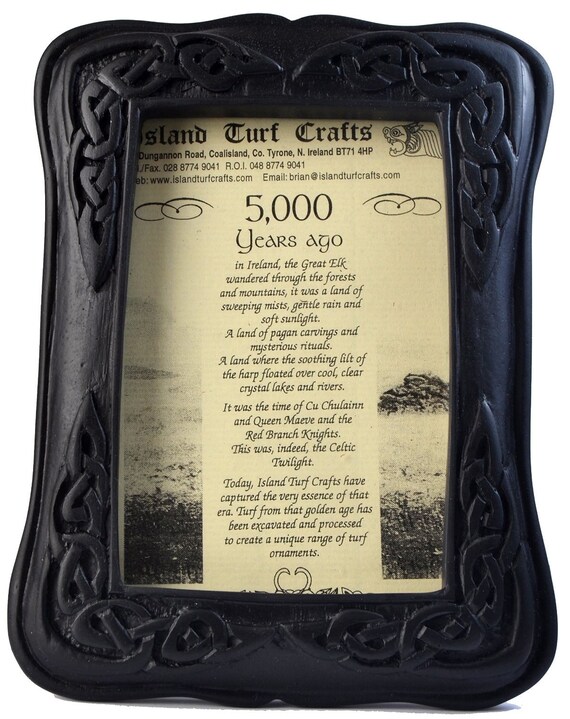 Island Turf Crafts
Dungannon Road, Coalisland, Co. Tyrone, N. Ireland BT71 4HP
./Fax. 028 8774 9041 R.O.I. 048 8774 9041
eb: www.islandturfcrafts.com Email: brian@islandturfcrafts.com
5,000
Years ago
in Ireland, the Great Elk
wandered through the forests
and mountains, it was a land of
sweeping mists, gentle rain and
soft sunlight.
A land of pagan carvings and
mysterious rituals.
A land where the soothing lilt of
the harp floated over cool, clear
crystal lakes and rivers.
It was the time of Cu Chulainn
and Queen Maeve and the
Red Branch Knights.
This was, indeed, the Celtic
Twilight.
Today, Island Turf Crafts have
captured the very essence of that
era. Turf from that golden age has
been excavated and processed
to create a unique range of turf
ornaments.